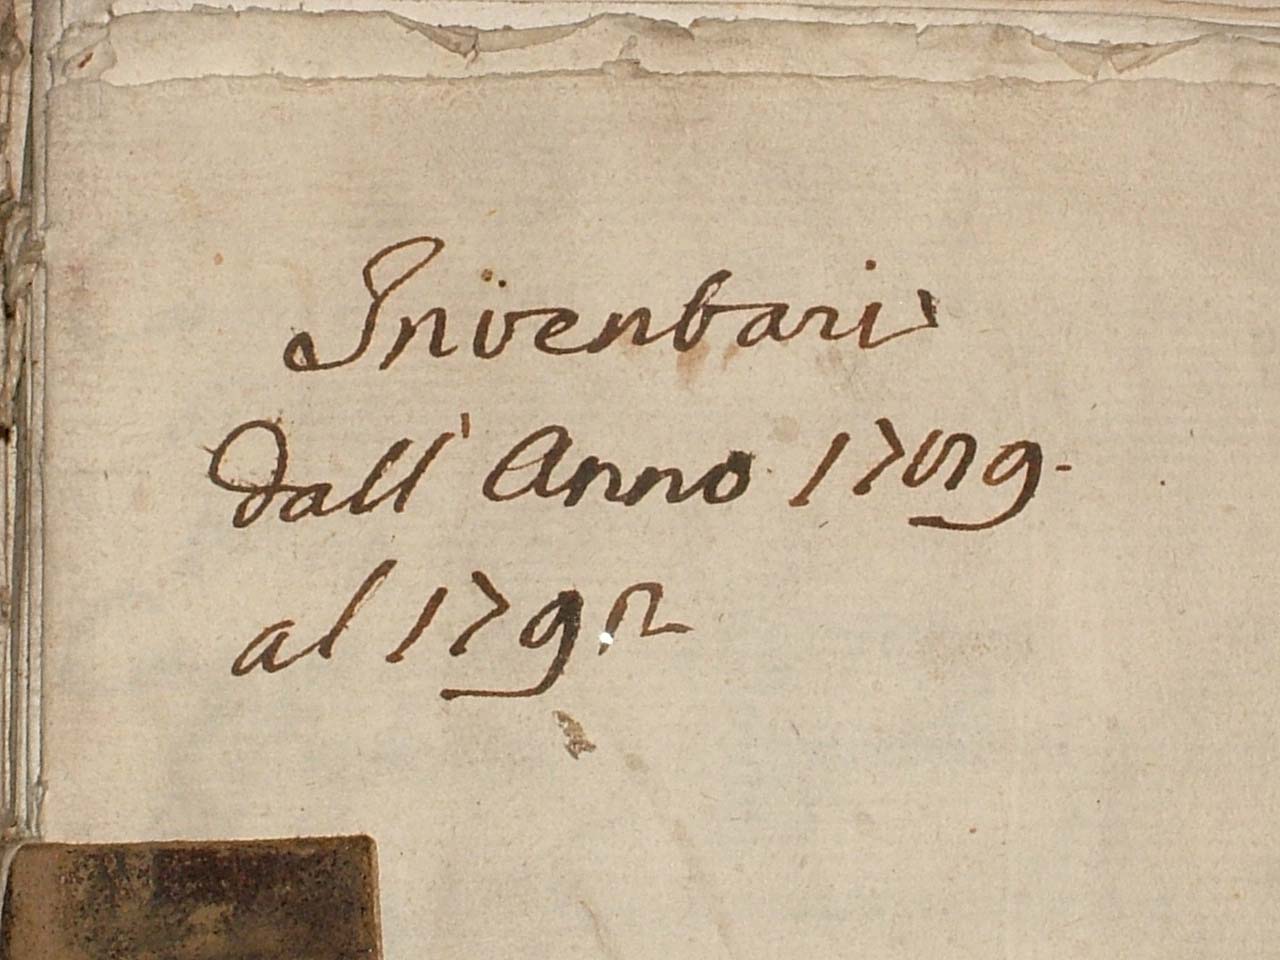 Inventari
dall' Anno
al 1792